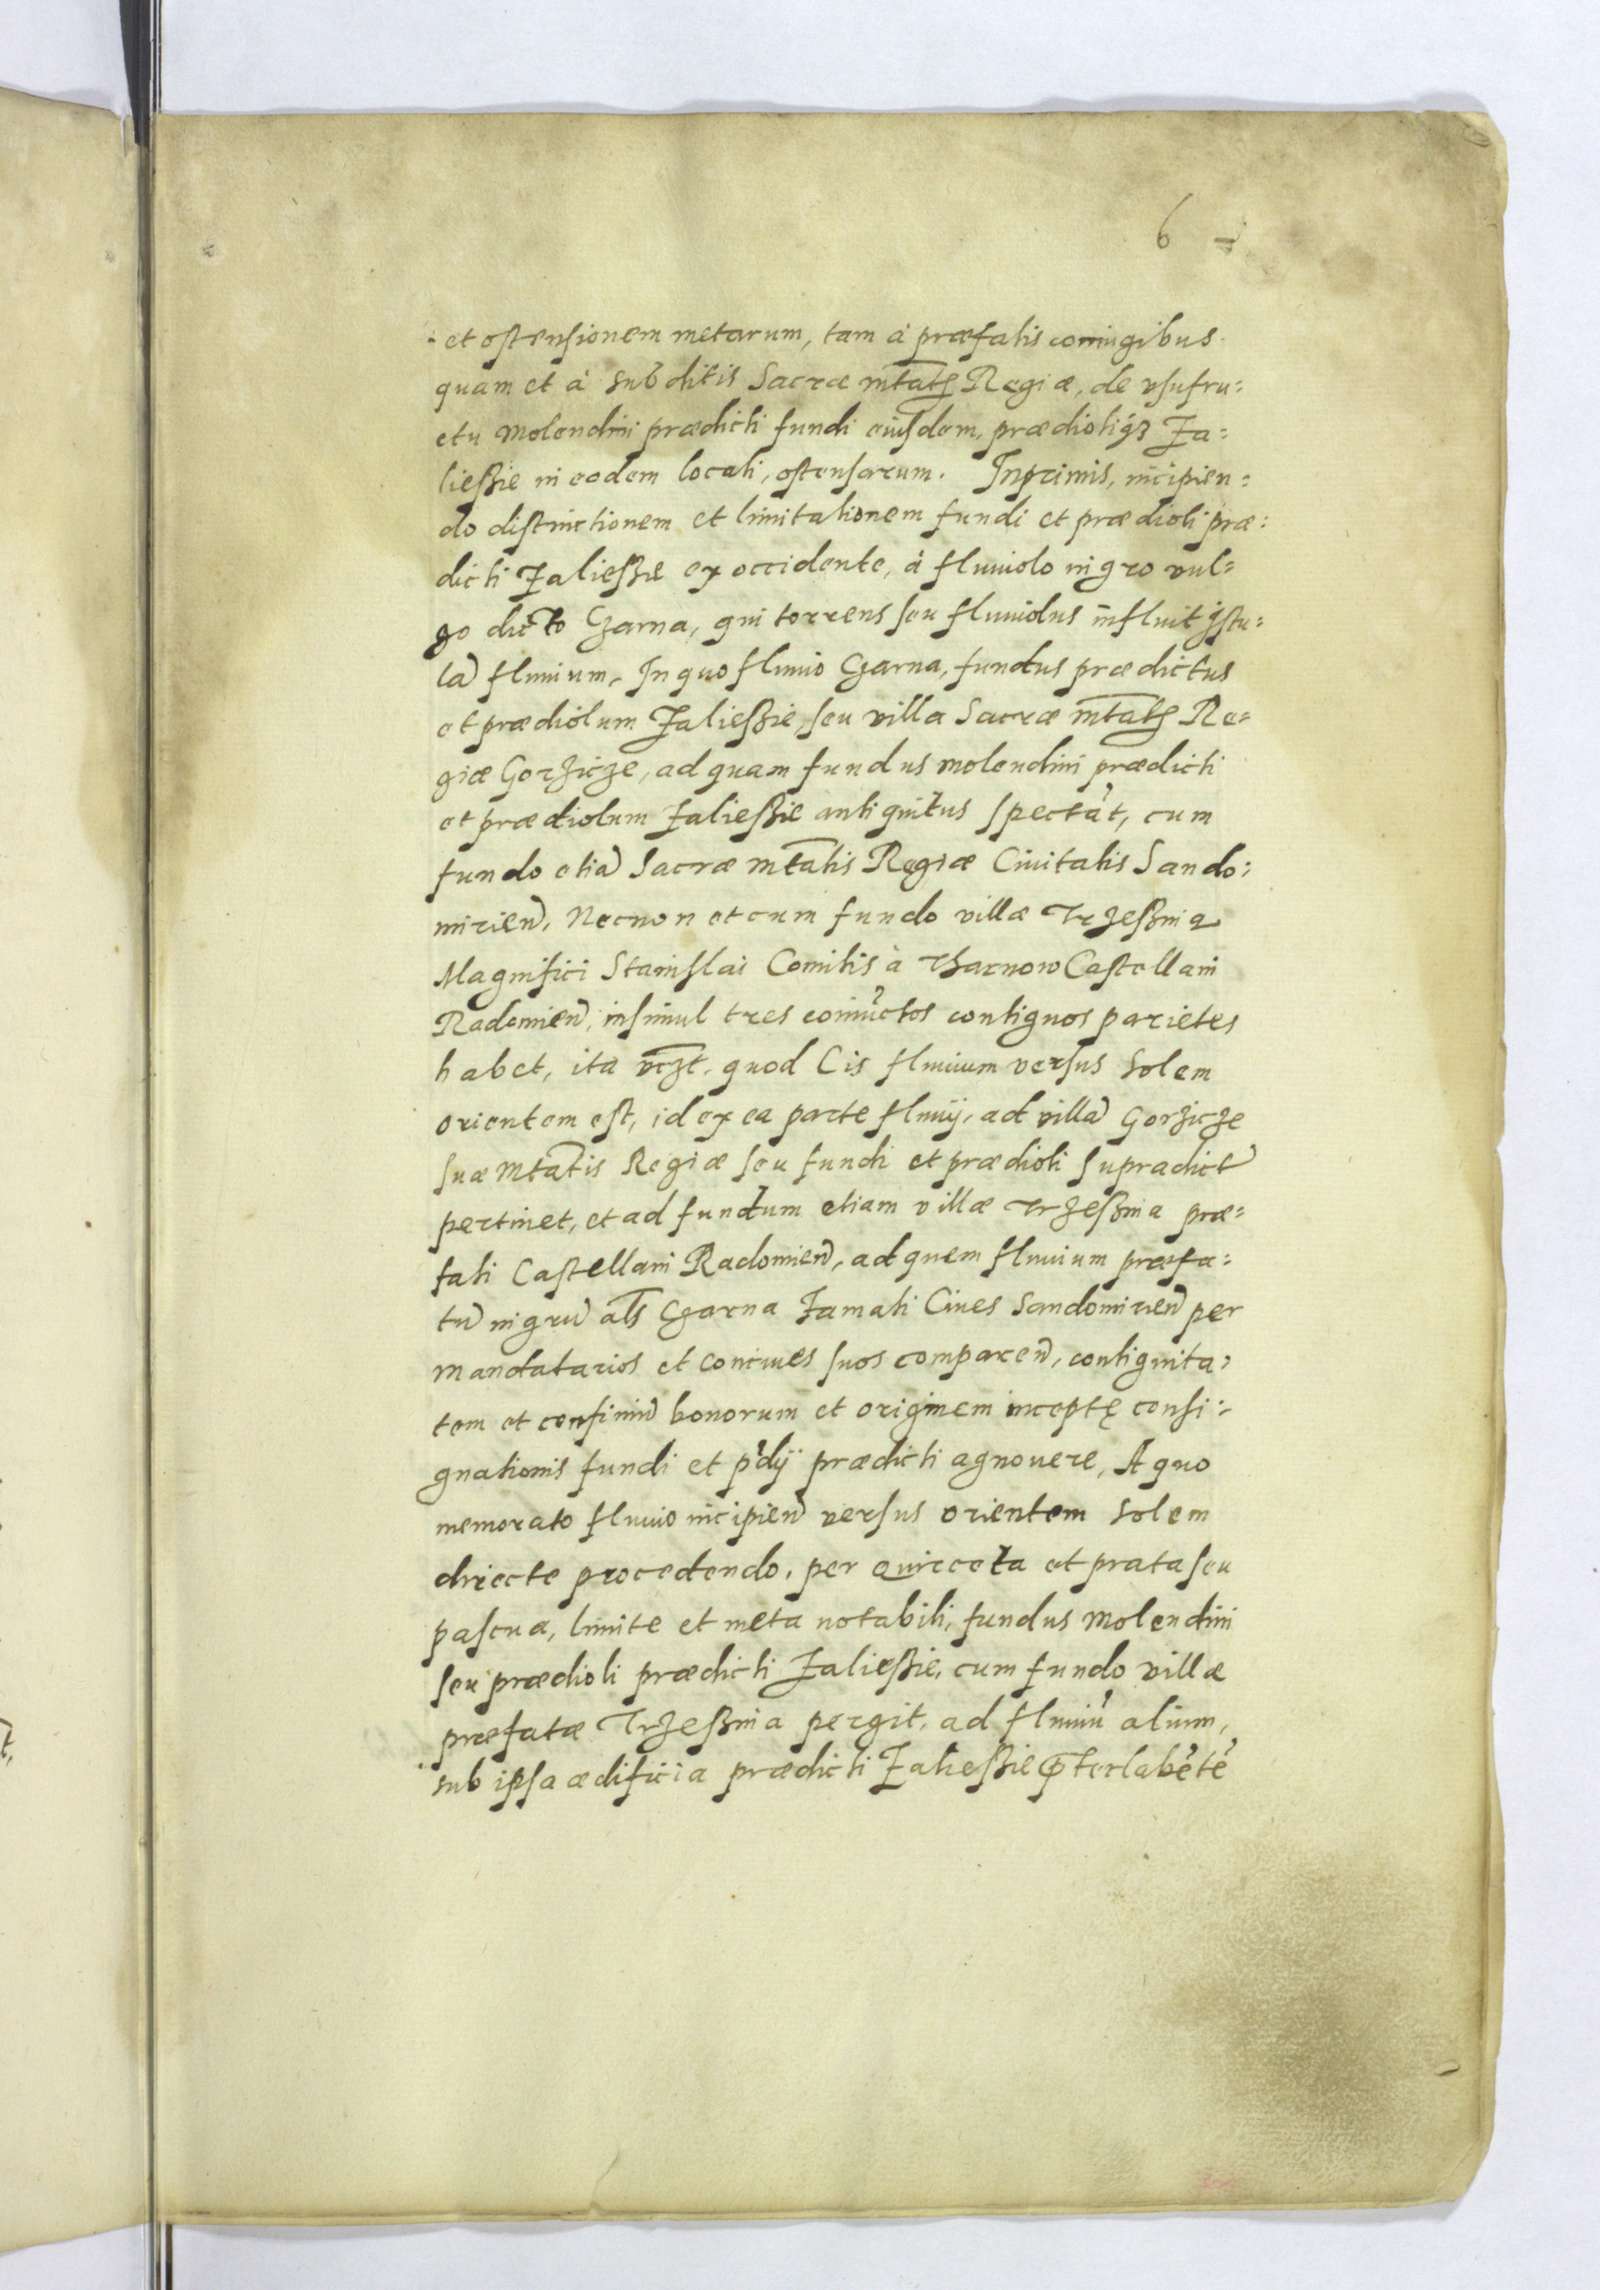 6
et ostensionem metarum, tam à præfatis coniugibus
quam et à subditis Sacræ mtatis Regiæ, de vsufru=
ctu molendini prædicti fundi eiusdem, prædioliq3 Za=
liessie in eodem locati, ostensarum. Inprimis, incipien=
do distinctionem et limitationem fundi et prædioli præ=
dicti Zaliessie ex occidente, à fluuiolo nigro vul=
go dicto Czarna, qui torrens seu fluuiolus influit
fluuium, In quo fluuio Czarna, fundus prædictus
et prædiolum Zaliessie, seu villa Sacræ mtatis Re=
giæ Gorzicze, ad quam fundus molendini prædicti
et prædiolum Zaliessie antiquitus spectāt, cum
fundo etiā Sacræ mtatis Regiæ Ciuitatis Sando=
mirien̄, Necnon et cum fundo villæ Trzessnia
Magnifici Stanislai Comitis à Tharnow Castellani
Radomien̄, insimul tres coniūctos contiguos parietes
habet, ita vczt. quod Cis fluuium versus Solem
orientem est, id ex ea parte fluuij, ad villā Gorzicze
suæ Mtatis Regiæ seu fundi et prædioli supradict
pertinet, et ad fundum etiam villæ Trzessnia præ=
fati Castellani Radomien̄, ad quem fluuium præfa=
tū nigrū als Czarna Famati Ciues Sandomirien̄ per
mandatarios et conciues suos comparen̄, contiguita=
tem et confiniū bonorum et originem inceptę consi=
gnationis fundi et p̄dij prædicti agnouere, A quo
memorato fluuio incipien̄ versus orientem Solem
directe procedendo, per quirceta et prata seu
pascua, limite et meta notabili, fundus molendini
seu prædioli prædicti Zaliessie, cum fundo villæ
præfatæ Trzessnia pergit, ad fluuiū alium,
sub ipsa ædificia prædicti Zaliessie